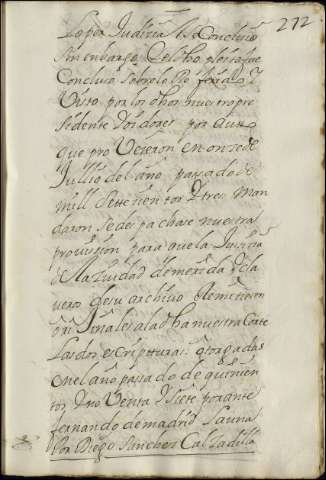 272
Lo por Justicia se Concluio
sin embargo el dho pleito fue
Concluso sobre lo Referido
Visto por los dhos nuestro pre
sidente Oidores por auto
que proVeieron en onze de
Jullio del año pasado de
mill sette çientos y tres man
daron se despachase nuestra
provission para que la Justicia
de la Ziudad de merida y cla
vero de su archivo Remitiesen
originales a la dha nuestra Corte
Las dos escriptturas otorgadas
en el año pasado de quinien
tos y noVenta y siete por ante
fernando de madrid la una
Por Diego Sanchez Calzadilla